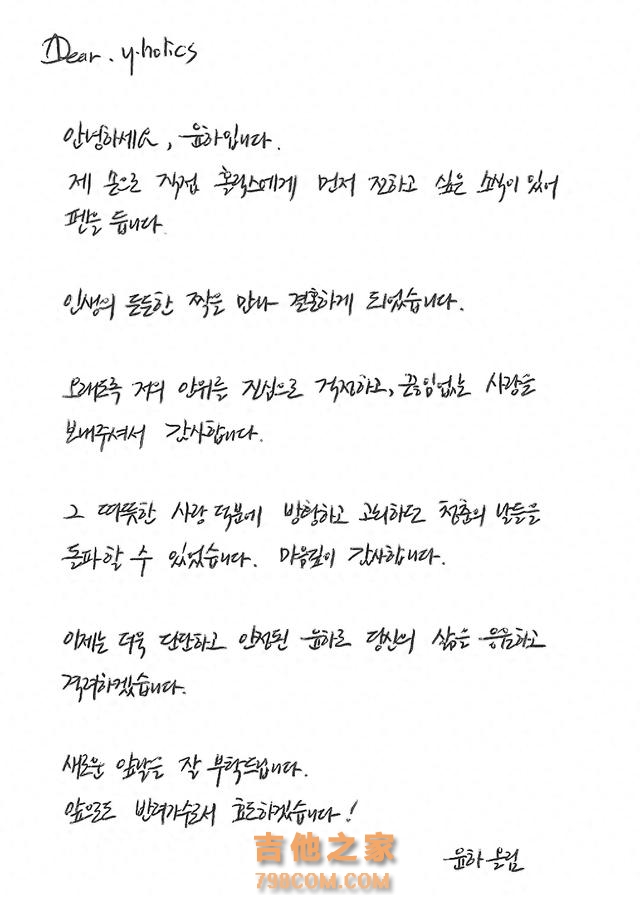 Dear. y.holics
안녕하세요, 윤하입니다.
제 손으로 직접 홀릭스에게 먼저 전하고 싶은 소식이 있어
펜을 듭니다.
인생의 든든한 짝을 만나 결혼하게 되었습니다.
오래도록 저의 안위를 진심으로 걱정하고, 끊임없는 사랑을
보내주셔서 감사합니다.
그 따뜻한 사랑 덕분에 방황하고 고뇌하던 청춘의 날들을
돌파할 수 있었습니다. 마음깊이 감사합니다.
이제는 더욱 단단하고 안정된 윤하로 당신의 삶을 응원하고
격려하겠습니다.
새로운 앞날을 잘 부탁드립니다.
앞으로도 반려가수로서 효도하겠습니다!
윤하 올림
吉他之家
798COM.COM